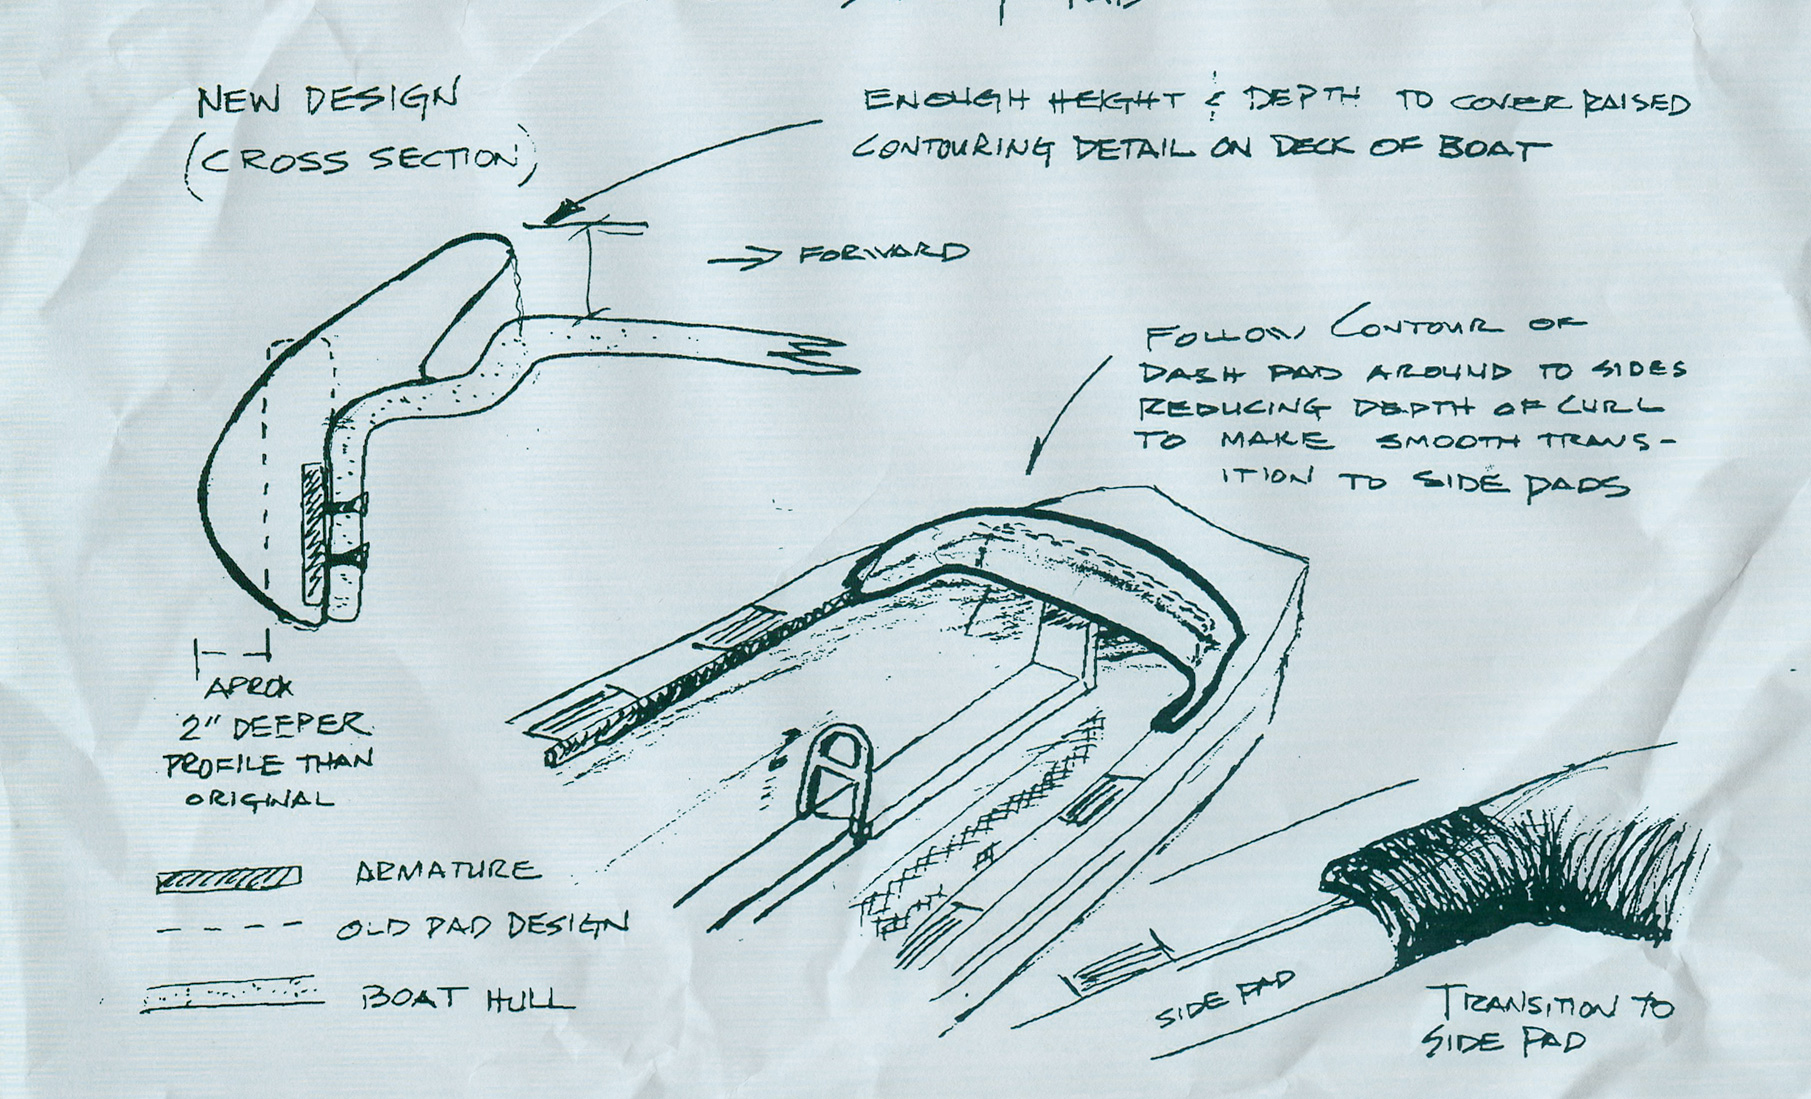 PAD
NEW DESIGN
(CROSS SECTION)
ENOUGH HEIGHT & DEPTH TO COVER RAISED
CONTOURING DETAIL ON DECK OF BOAT
→ FORWARD
FOLLOW CONTOUR OF
DASH PAD AROUND TO SIDES
REDUCING DEPTH OF CURL
TO MAKE SMOOTH TRANS-
ITION TO SIDE PADS
APROX
2" DEEPER
PROFILE THAN
ORIGINAL
ARMATURE
OLD PAD DESIGN
BOAT HULL
SIDE PAD
TRANSITION TO
SIDE PAD